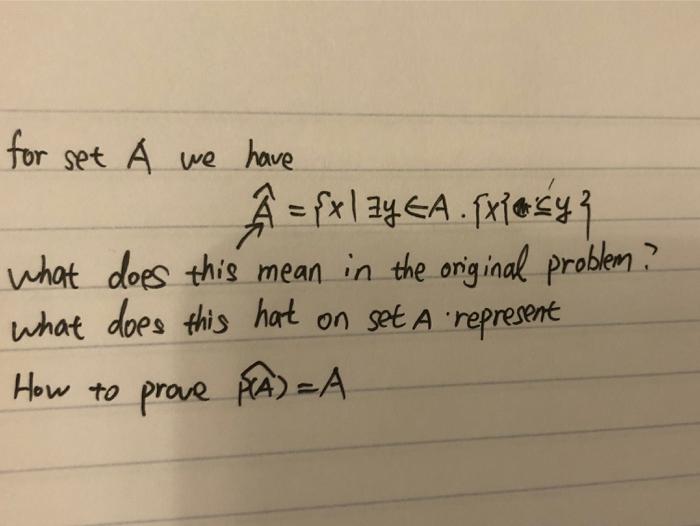 for set A we have
Â = {x | ∃y ∈ A . {x} ⊆ y}
what does this mean in the original problem?
what does this hat on set A represent
How to prove \widehat{P(A)} = A